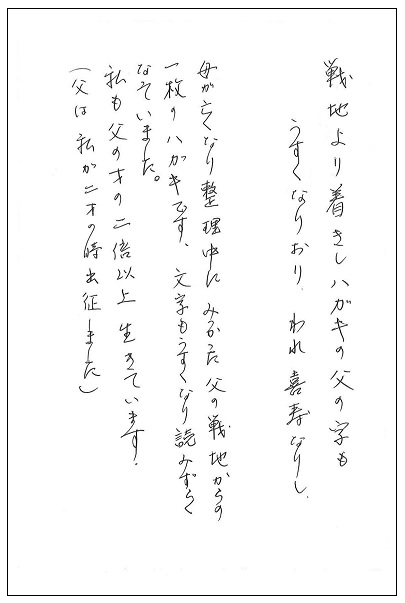 戦地より着きしハガキの父の字も
うすくなりおり、われ喜寿なりし、
母が亡くなり整理中にみかた父の戦地からの
一枚のハガキです、文字もうすくなり読みずらく
なていました。
私も父の才の二倍以上生きています。
(父は私が二才の時出征しました)